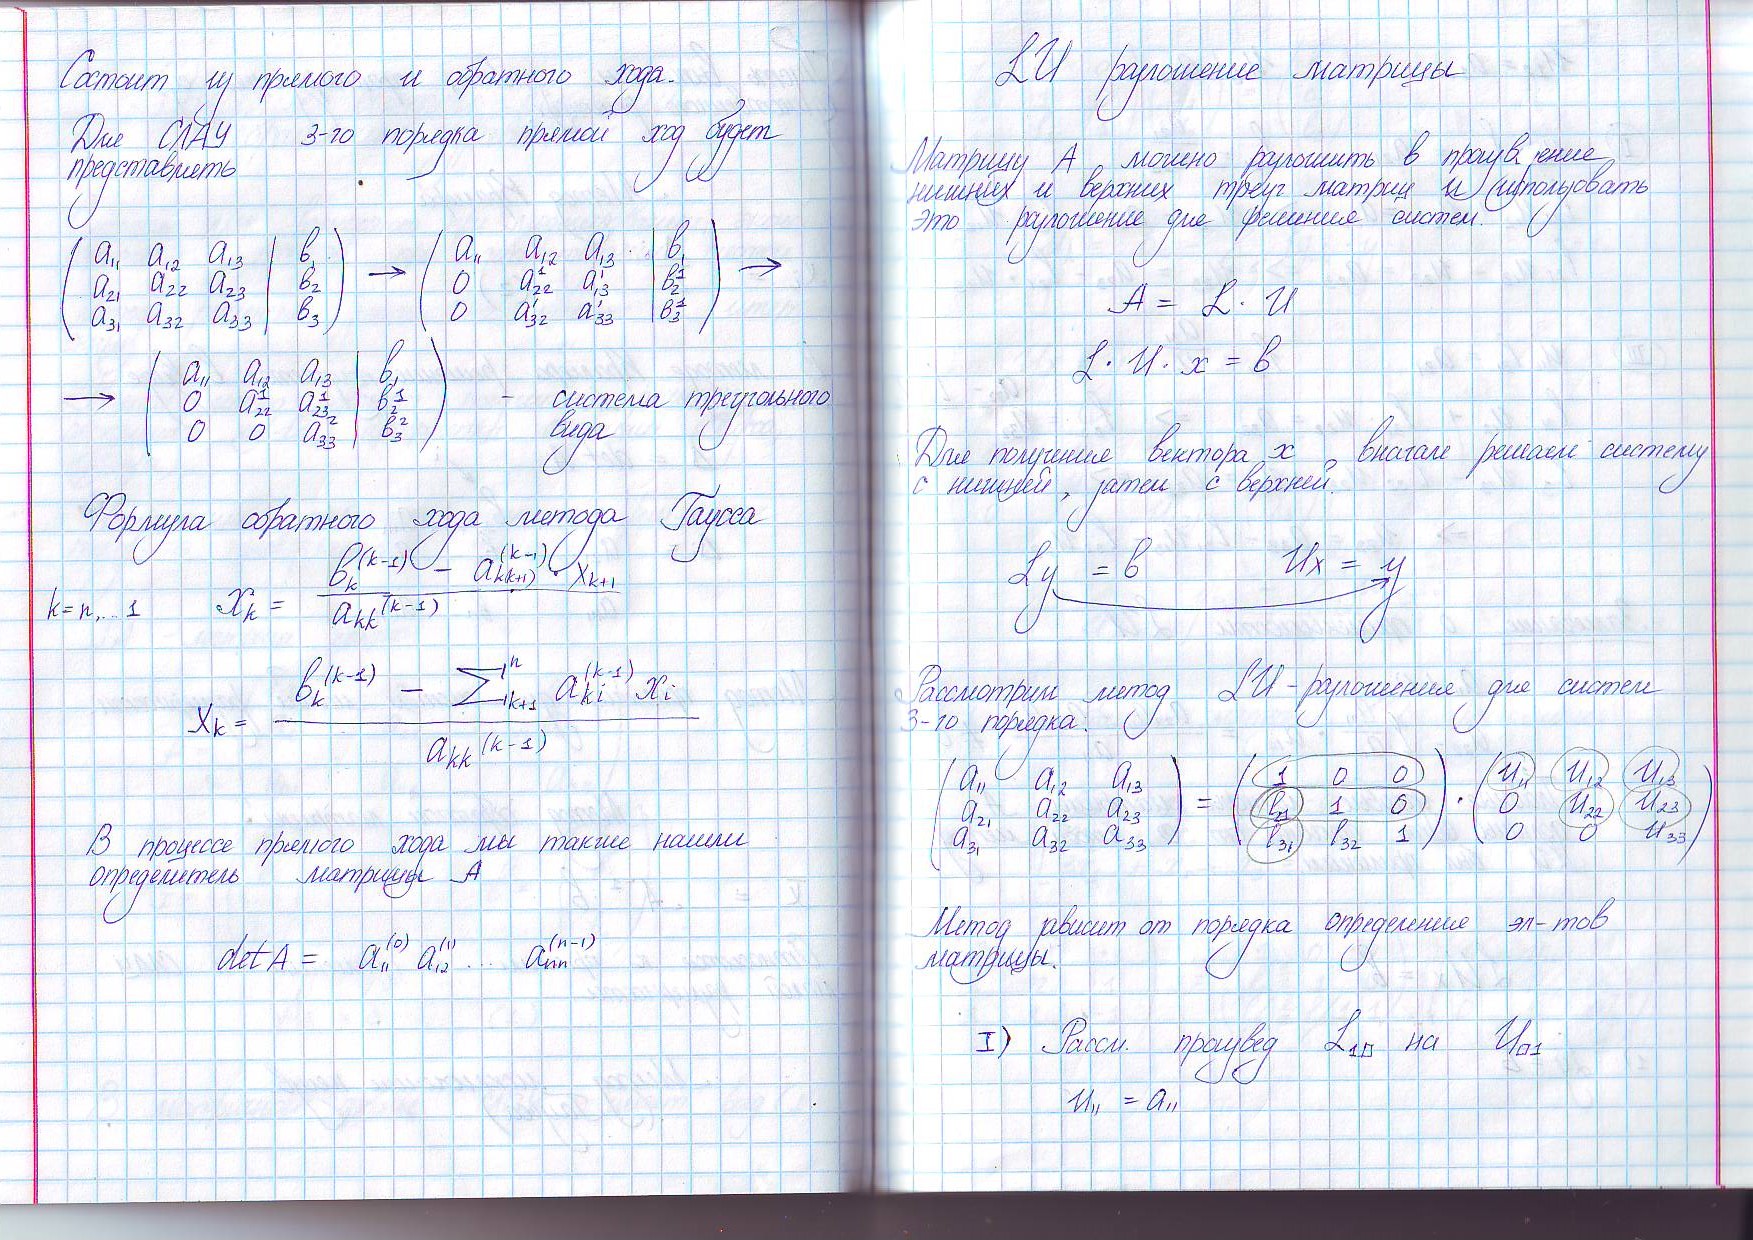 Состоит из прямого и обратного хода.
Для СЛАУ 3-го порядка прямой ход будет
представлять
( a₁₁ a₁₂ a₁₃ | b₁ ) → ( a₁₁ a₁₂ a₁₃ | b₁ ) →
( a₂₁ a₂₂ a₂₃ | b₂ ) ( 0 a¹₂₂ a¹₁₃ | b¹₂ )
( a₃₁ a₃₂ a₃₃ | b₃ ) ( 0 a¹₃₂ a¹₃₃ | b¹₃ )
→ ( a₁₁ a₁₂ a₁₃ | b₁ )
( 0 a¹₂₂ a¹₂₃ | b¹₂ ) - система треугольного
( 0 0 a²₃₃ | b²₃ ) вида
Формула обратного хода метода Гаусса
k=n,...1 x_k = (b_k^(k-1) - a_kk+1)^(k-1) · x_k+1) / a_kk^(k-1)
x_k = (b_k^(k-1) - ∑_{i=k+1}^n a_ki^(k-1) x_i) / a_kk^(k-1)
В процессе прямого хода мы также нашли
определитель матрицы A
det A = a₁₁^(0) a₁₂^(1) ... a_nn^(n-1)
LU разложение матрицы
Матрицу A можно разложить в произв ение
нижних и верхних треуг матриц и использовать
это разложение для решения систем.
A = L · U
L · U · x = b
Для получения вектора x, вначале решаем систему
с нижней, затем с верхней.
Ly = b Ux = y
Рассмотрим метод LU-разложения для систем
3-го порядка.
( a₁₁ a₁₂ a₁₃ ) = ( 1 0 0 ) · ( u₁₁ u₁₂ u₁₃ )
( a₂₁ a₂₂ a₂₃ ) ( l₂₁ 1 0 ) ( 0 u₂₂ u₂₃ )
( a₃₁ a₃₂ a₃₃ ) ( l₃₁ l₃₂ 1 ) ( 0 0 u₃₃ )
Метод зависит от порядка определения эл-тов
матрицы.
I) Рассм. произвед L₁□ на U□₁
u₁₁ = a₁₁